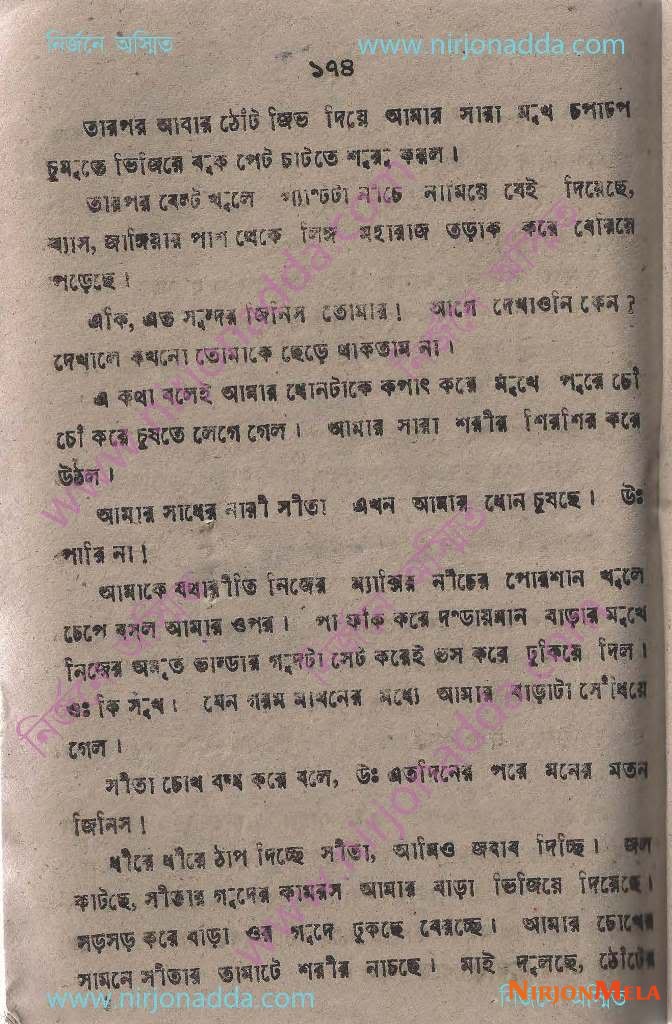 নির্জনে অস্মিত www.nirjonadda.com
১৭৪
তারপর আবার ঠোঁট জিভ দিয়ে আমার সারা মুখ চপাচপ
চুমুতে ভিজিয়ে বুক পেট চাটতে শুরু করল।
তারপর বেল্ট খুলে প্যান্টটা নীচে নামিয়ে যেই দিয়েছে,
ব্যাস, জাঙ্গিয়ার পাশ থেকে লিঙ্গ মহারাজ তড়াক করে বেরিয়ে
পড়েছে।
একি, এত সুন্দর জিনিস তোমার! আগে দেখাওনি কেন?
দেখালে কখনো তোমাকে ছেড়ে থাকতাম না।
এ কথা বলেই আমার ধোনটাকে কপাৎ করে মুখে পুরে চোঁ
চোঁ করে চুষতে লেগে গেল। আমার সারা শরীর শিরশির করে
উঠল।
আমার সাধের নারী সীতা এখন আমার ধোন চুষছে। উঃ
পারি না!
আমাকে যথারীতি নিজের ম্যাক্সির নীচের পোরশান খুলে
চেপে বসল আমার ওপর। পা ফাঁক করে দণ্ডায়মান বাড়ার মুখে
নিজের অমৃত ভাণ্ডার গুদটা সেট করেই ভস করে ঢুকিয়ে দিল।
ওঃ কি সুখ। যেন গরম মাখনের মধ্যে আমার বাড়াটা সেঁধিয়ে
গেল।
সীতা চোখ বন্ধ করে বলে, উঃ এতদিনের পরে মনের মতন
জিনিস!
ধীরে ধীরে ঠাপ দিচ্ছে সীতা, আমিও জবাব দিচ্ছি। জল
কাটছে, সীতার গুদের কামরস আমার বাড়া ভিজিয়ে দিয়েছে।
সড়সড় করে বাড়া ওর গুদে ঢুকছে বেরচ্ছে। আমার চোখের
সামনে সীতার তামাটে শরীর নাচছে। মাই দুলছে, ঠোঁটের
www.nirjonadda.com নির্জনে অস্মিত
NIRJONMELA